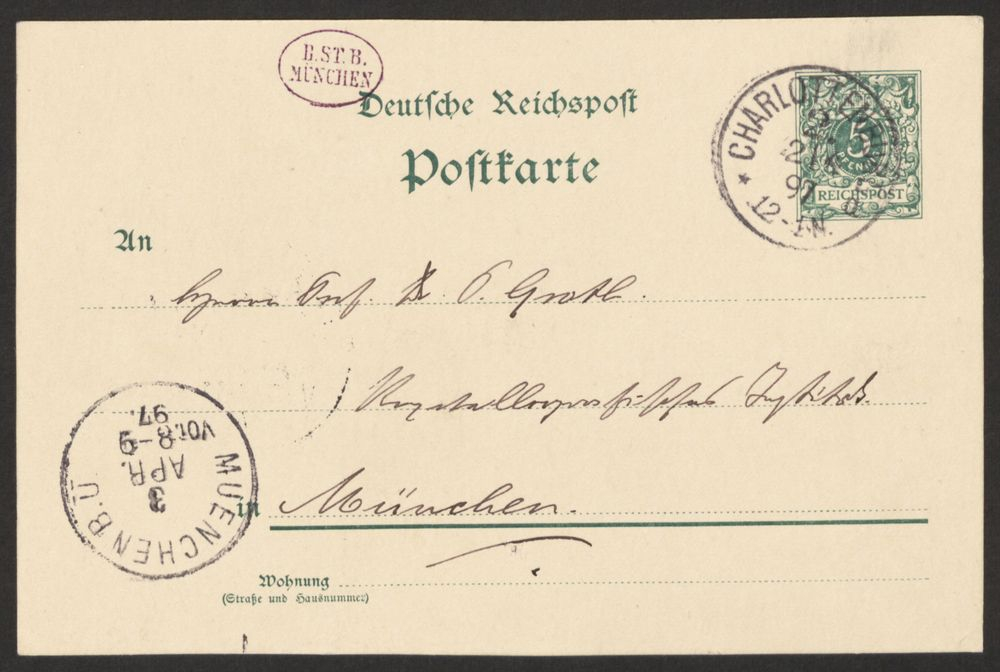 B.ST.B.
MÜNCHEN
Deutsche Reichspost
Postkarte
* CHARLOTTENBURG
2/4
97
12-1N.
5
PFENNIG
REICHSPOST
An
Herrn Prof. Dr P. Groth.
Krystallographisches Institut.
in München.
MUENCHEN B.Ü
3
APR.
VOR.8-9
97.
Wohnung
(Straße und Hausnummer)